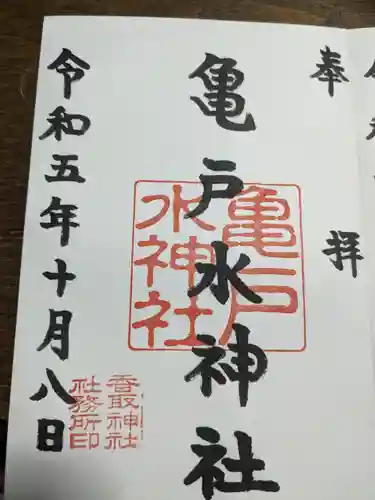 奉拝
亀戸水神社
令和五年十月八日
亀戸
水神社
香取神社
社務所印